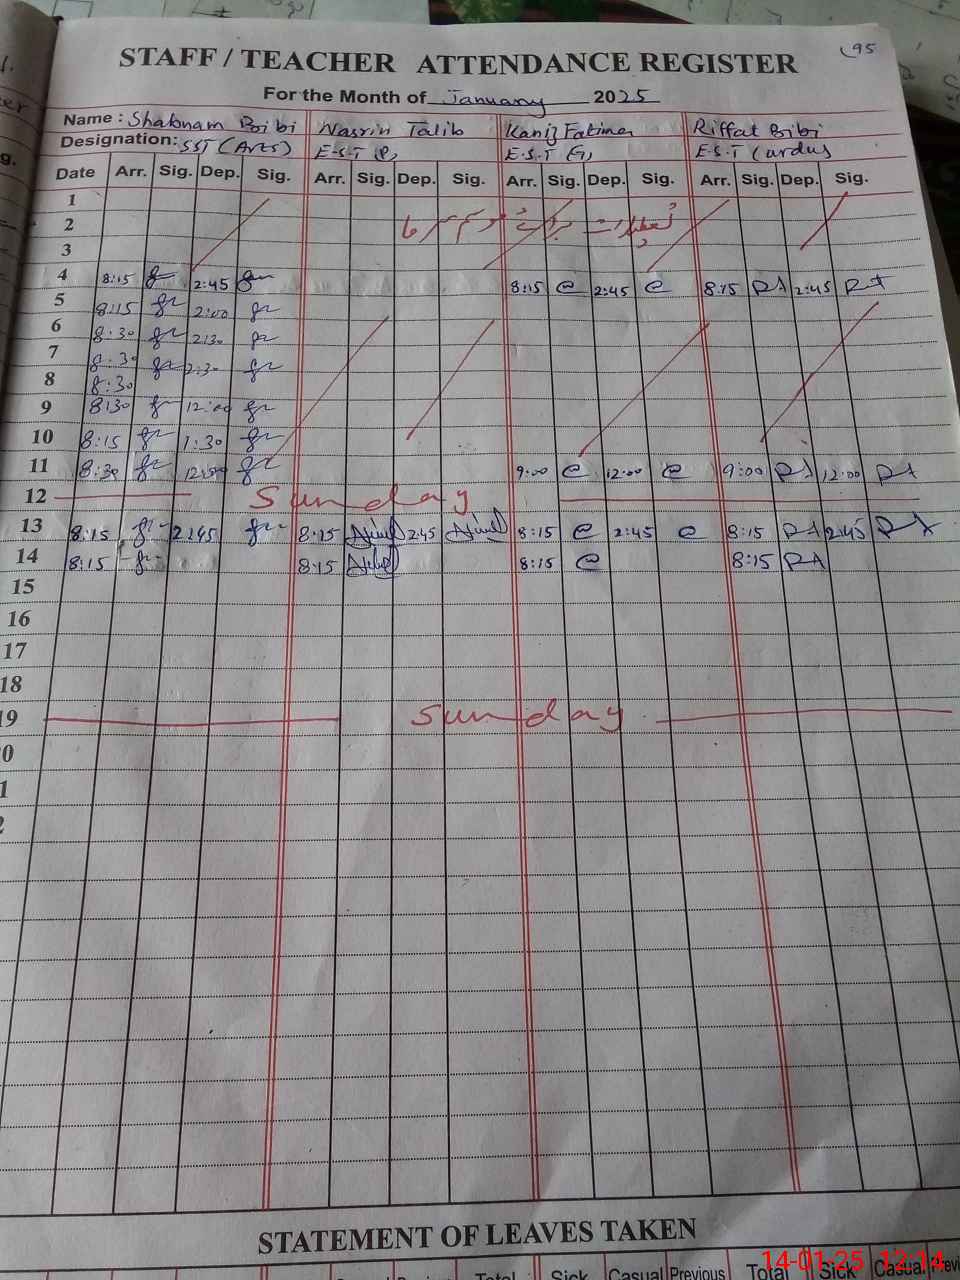 95
STAFF / TEACHER ATTENDANCE REGISTER
For the Month of January 2025
Name : Shabnam Bibi Nasrin Talib Kaniz Fatima Riffat Bibi
Designation: SST (Arts) E.S.T (P) E.S.T (G) E.S.T (urdu)
Date Arr. Sig. Dep. Sig. Arr. Sig. Dep. Sig. Arr. Sig. Dep. Sig. Arr. Sig. Dep. Sig.
1
2 تعطیلات برائے موسم سرما
3
4 8:15 2:45 8:15 2:45 8:15 RA 2:45 RA
5 8:15 2:00
6 8:30 2:30
7 8:30 2:30
8 8:30
9 8:30 12:00
10 8:15 1:30
11 8:30 12:00 9:00 12:00 9:00 RA 12:00 RA
12 Sunday
13 8:15 2:45 8:15 2:45 8:15 2:45 8:15 RA 2:45 RA
14 8:15 8:15 8:15 8:15 RA
15
16
17
18
19 Sunday
0
1
2
STATEMENT OF LEAVES TAKEN
Total Sick Casual Previous Total Sick Casual
14-01-25 12:14